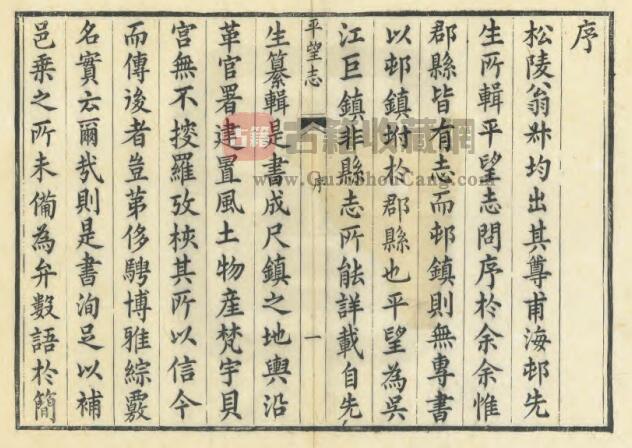 序
松陵翁朩均出其尊甫海邨先
生所輯平望志問序於余余惟
郡縣皆有志而邨鎮則無專書
以邨鎮坿於郡縣也平望為吳
江巨鎮非縣志所能詳載自先
平望志 序 一
生纂輯是書成尺鎮之地輿沿
革官署建置風土物産梵宇貝
宮無不搜羅攷核其所以信今
而傳後者豈苐侈騁博雅綜覈
名實云爾㢤則是書洵足以補
邑乗之所未備為弁數語於簡
古籍收藏網
www.GujiShouCang.com